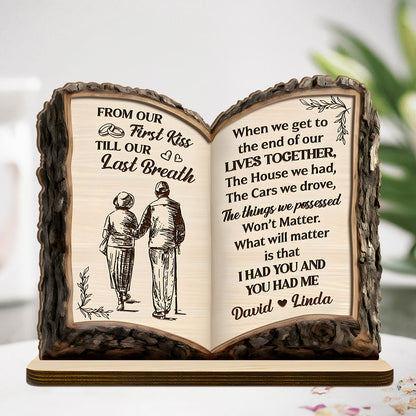 FROM OUR
First Kiss
TILL OUR
Last Breath
When we get to
the end of our
LIVES TOGETHER,
The House we had,
The Cars we drove,
The things we possessed
Won't Matter.
What will matter
is that
I HAD YOU AND
YOU HAD ME
David Linda